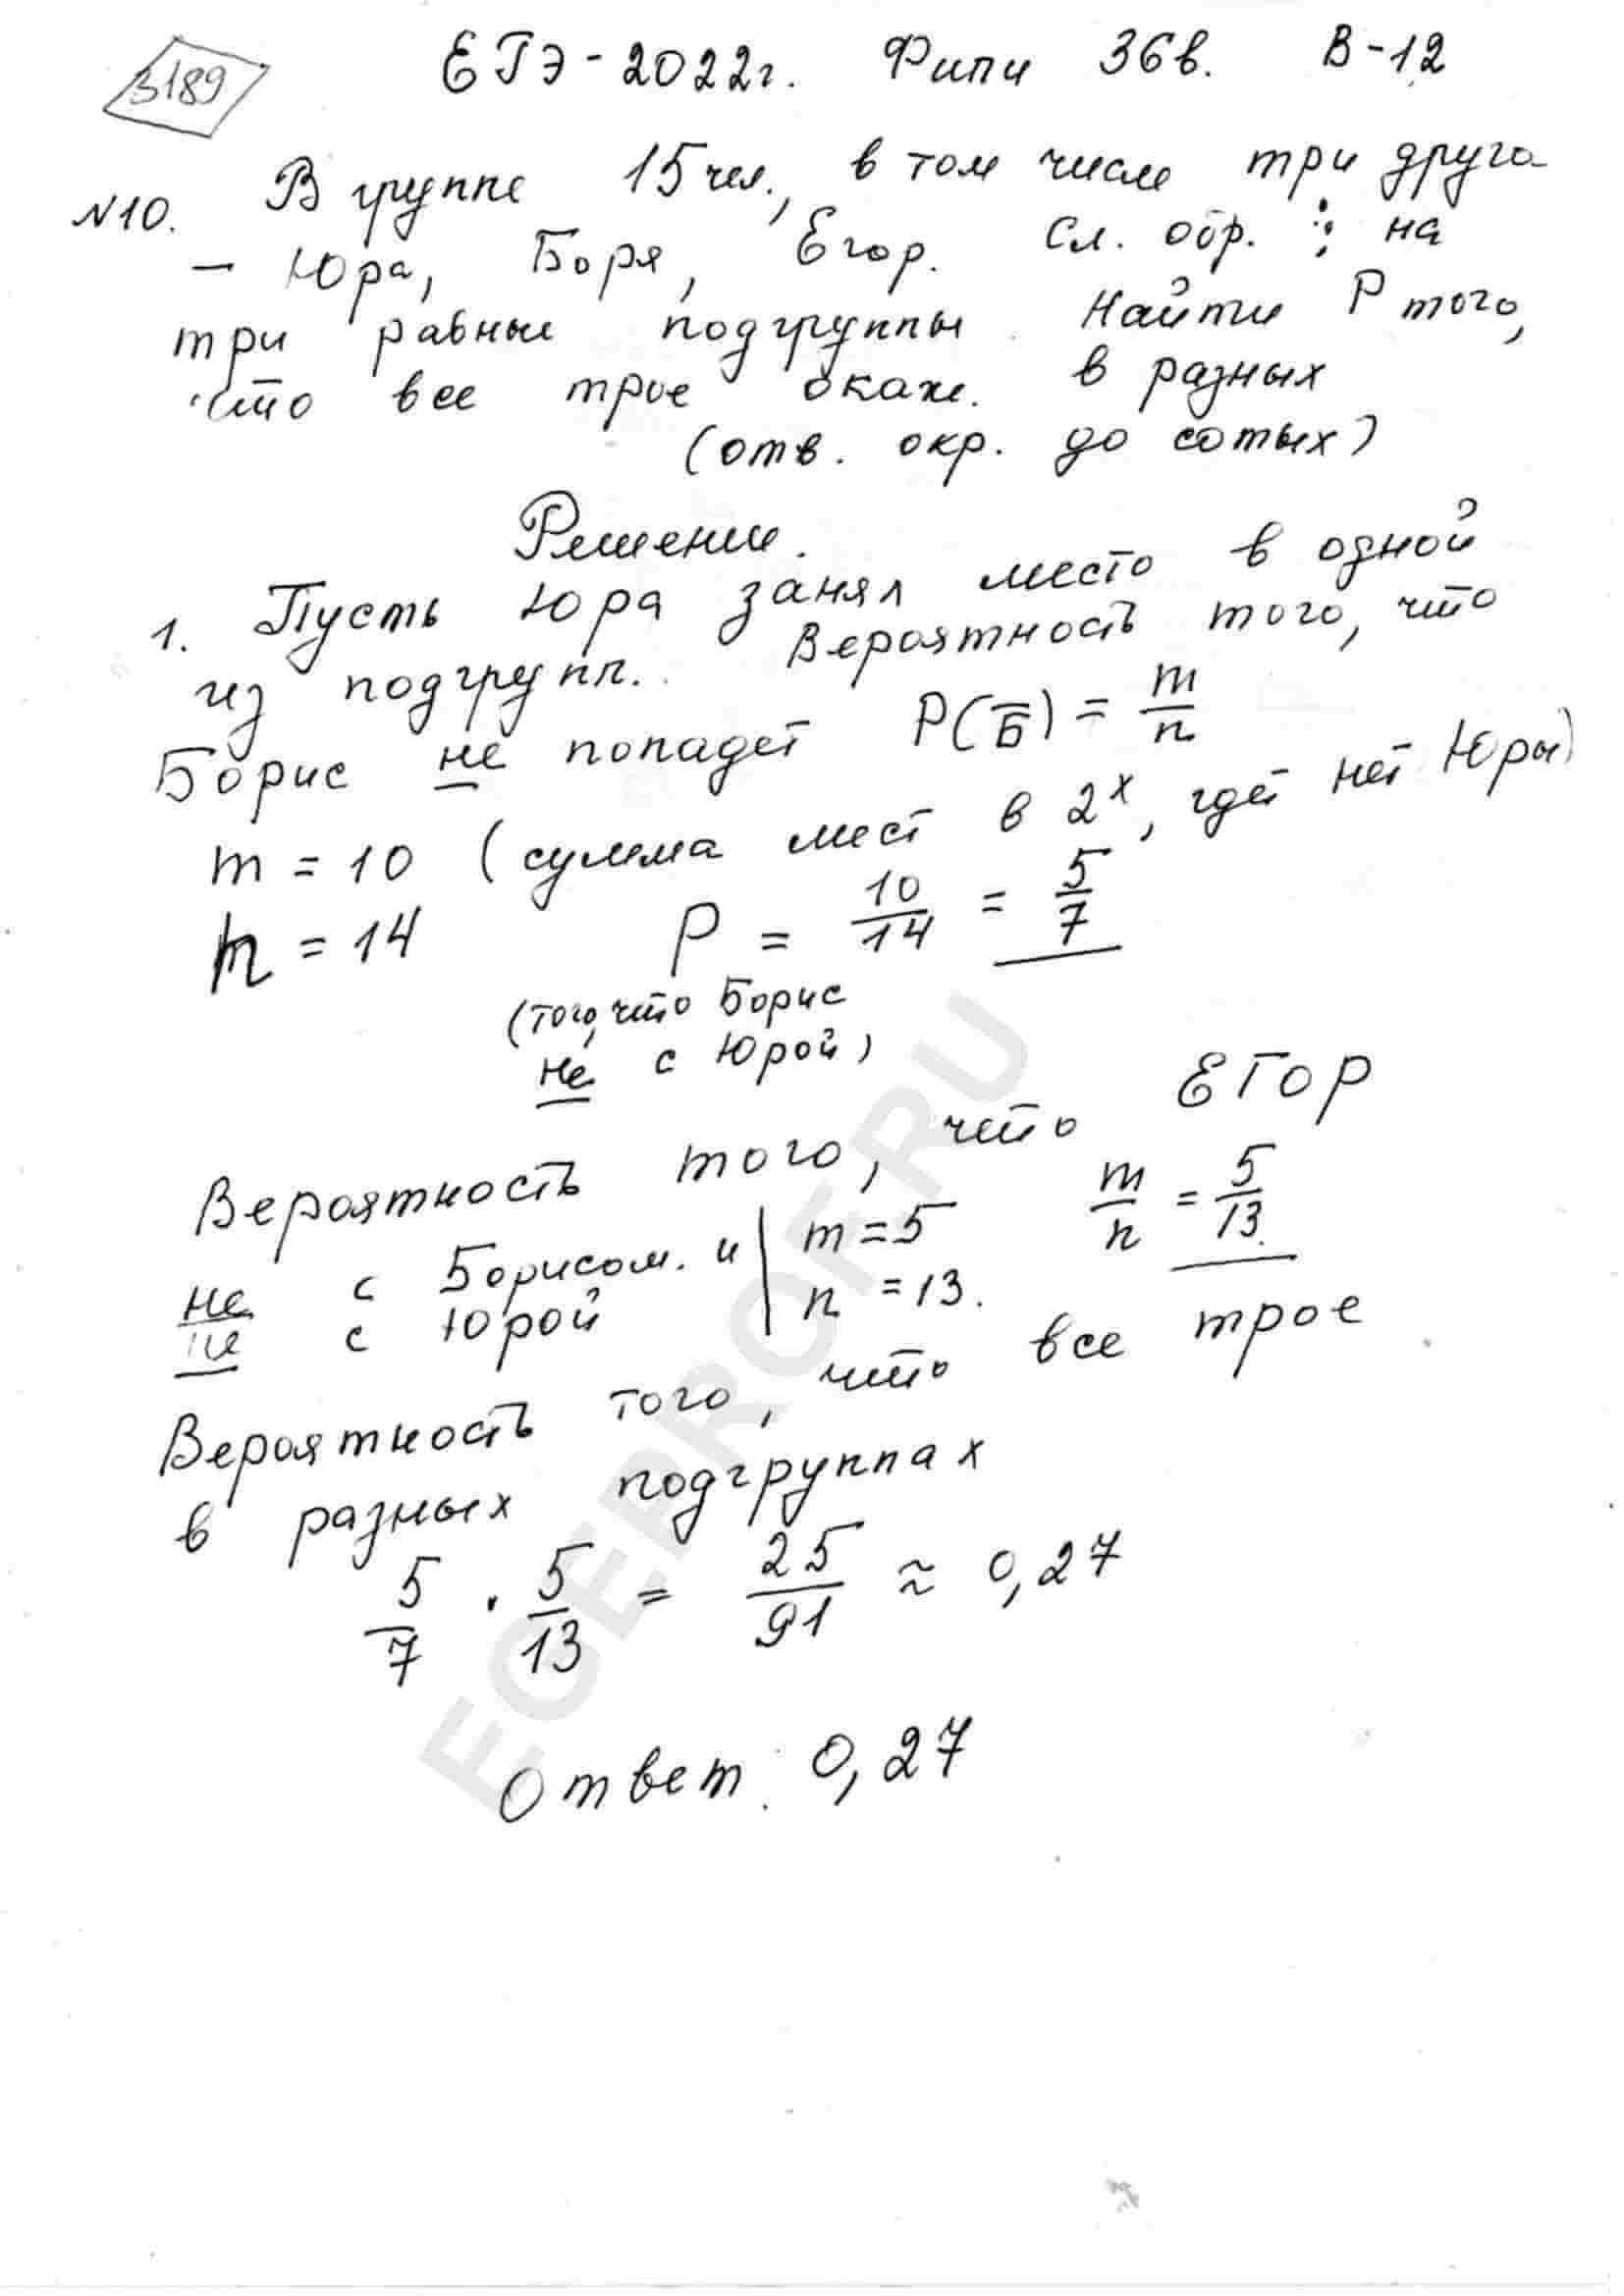 3189
ЕГЭ-2022г. Фипи 36в. В-12
№10. В группе 15 чел., в том числе три друга
- Юра, Боря, Егор. Сл. обр. : на
три равные подгруппы. Найти P того,
что все трое окаж. в разных
(отв. окр. до сотых)
Решение.
1. Пусть Юра занял место в одной
из подгрупп. Вероятность того, что
Борис не попадет P(Б̅) = m/n
m = 10 (сумма мест в 2х, где нет Юры)
n = 14 P = 10/14 = 5/7
(того, что Борис
не с Юрой)
Вероятность того, что ЕГОР
не с Борисом. и | m = 5 m/n = 5/13
не с Юрой | n = 13.
Вероятность того, что все трое
в разных подгруппах
5/7 · 5/13 = 25/91 ≈ 0,27
Ответ: 0,27
EGEPROF.RU